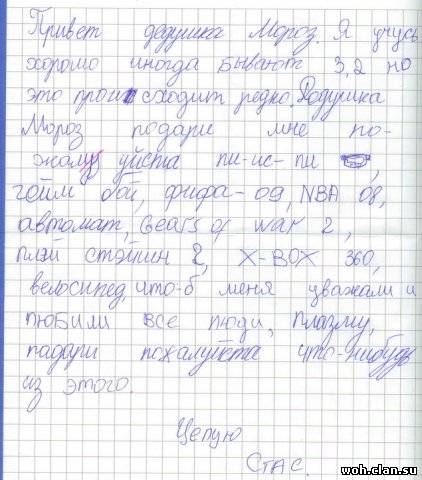 Привет дедушка Мороз. Я учусь
хорошо иногда бывают 3,2 но
это происходит редко. Дедушка
Мороз подари мне по-
жалуйста пи-ис-пи,
гейм бой, фифа-09, NBA 08,
автомат, Gears of war 2,
плэй стэйшен 2, X-BOX 360,
велосипед, что-б меня уважали и
любили все люди, плазму,
падари пожалуйста что-нибудь
из этого.
Целую
Стас.
woh.clan.su